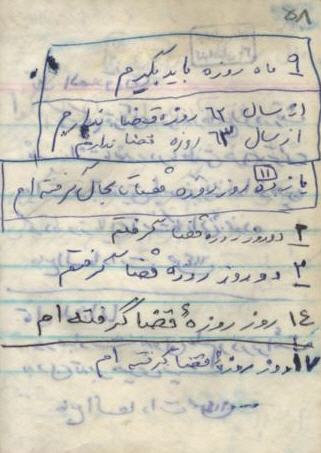 ۵۸
۹ ماه روزه باید بگیرم
از سال ۶۲ روزه قضا ندارم
از سال ۶۳ روزه قضا ندارم
یازده ۱۱ روز روزه قضا تا بحال گرفته ام
۲ دو روز روزه قضا گرفتم
۲ دو روز روزه قضا گرفتم
۱٤ روز روزهٔ قضا گرفته ام
۱۷ روز روزهٔ قضا گرفته ام